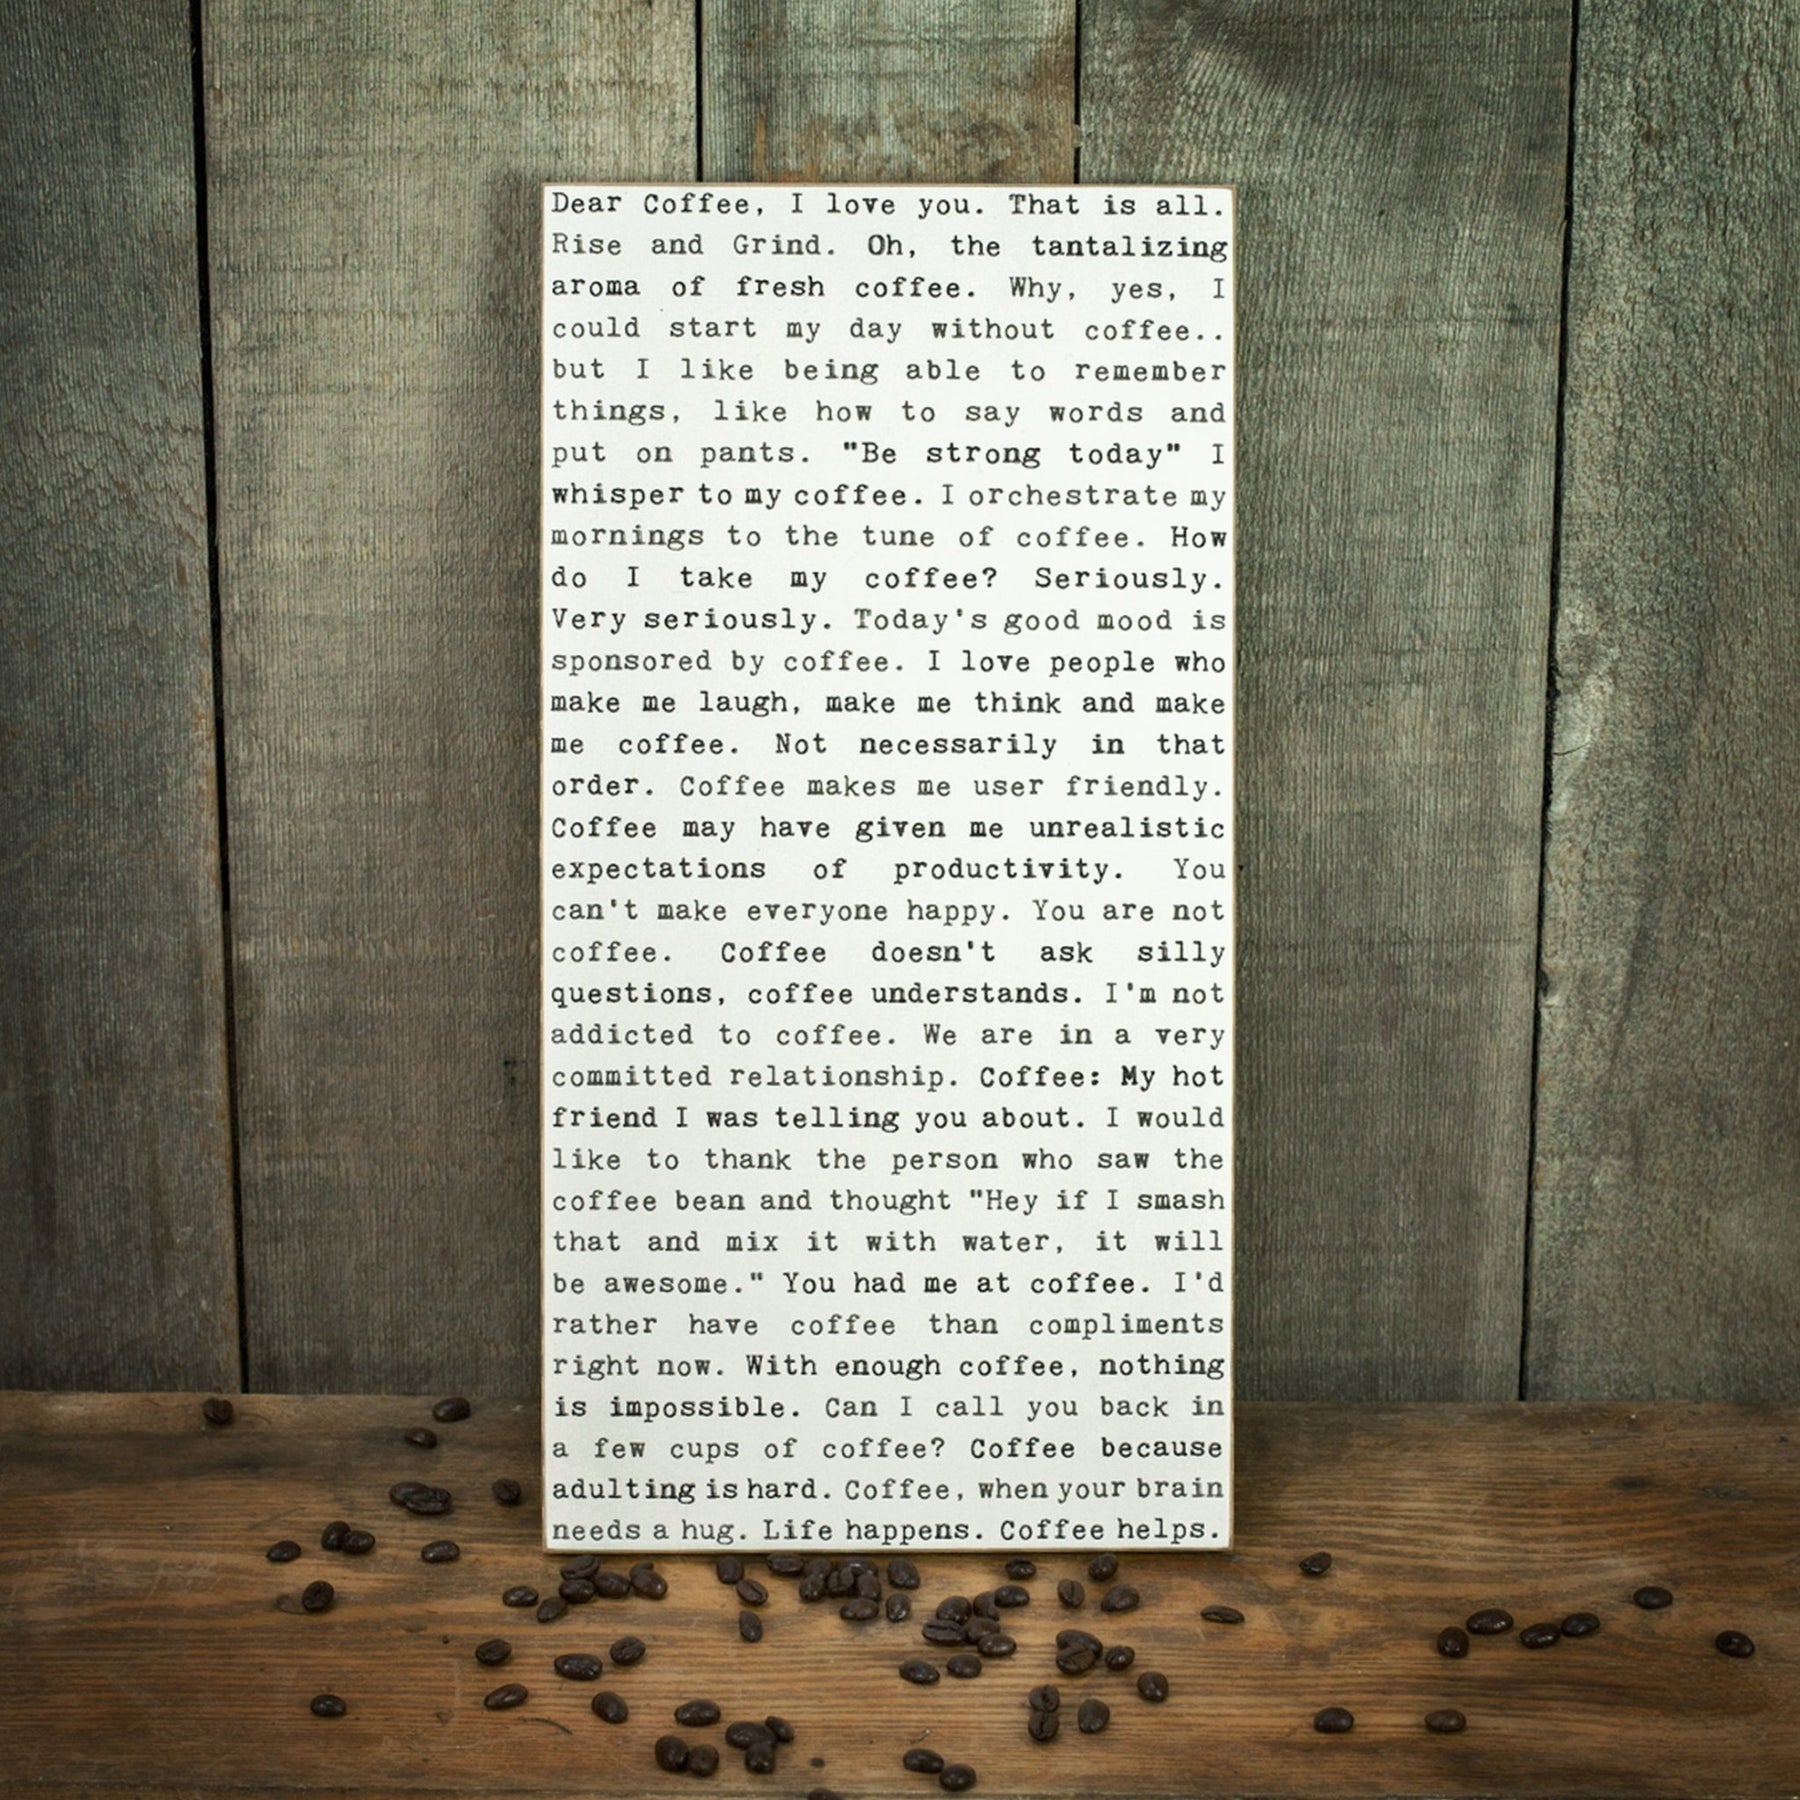 Dear Coffee, I love you. That is all.
Rise and Grind. Oh, the tantalizing
aroma of fresh coffee. Why, yes, I
could start my day without coffee..
but I like being able to remember
things, like how to say words and
put on pants. "Be strong today" I
whisper to my coffee. I orchestrate my
mornings to the tune of coffee. How
do I take my coffee? Seriously.
Very seriously. Today's good mood is
sponsored by coffee. I love people who
make me laugh, make me think and make
me coffee. Not necessarily in that
order. Coffee makes me user friendly.
Coffee may have given me unrealistic
expectations of productivity. You
can't make everyone happy. You are not
coffee. Coffee doesn't ask silly
questions, coffee understands. I'm not
addicted to coffee. We are in a very
committed relationship. Coffee: My hot
friend I was telling you about. I would
like to thank the person who saw the
coffee bean and thought "Hey if I smash
that and mix it with water, it will
be awesome." You had me at coffee. I'd
rather have coffee than compliments
right now. With enough coffee, nothing
is impossible. Can I call you back in
a few cups of coffee? Coffee because
adulting is hard. Coffee, when your brain
needs a hug. Life happens. Coffee helps.